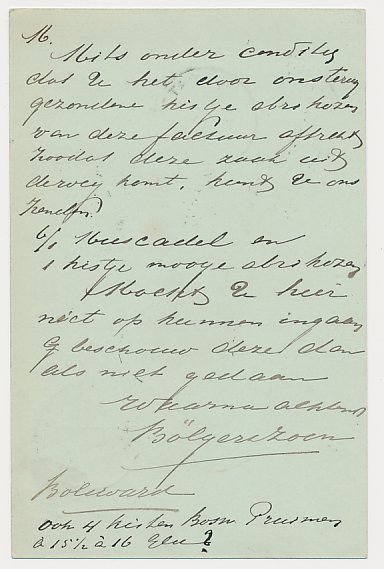 M.
Mits onder conditie
dat U het door ons terug
gezondene kistje abrikozen
van deze factuur aftrekt
zoodat deze zaak uit
de weg komt, kunt U ons
zenden.
6/1 Muscadel en
1 kistje mooye abrikozen
Mocht U hier
niet op kunnen ingaan
beschouw deze dan
als niet gedaan
achtend
Bölger & Zoon
Bolsward
ook 4 kisten Bosn Pruimen
à 15½ à 16 ?